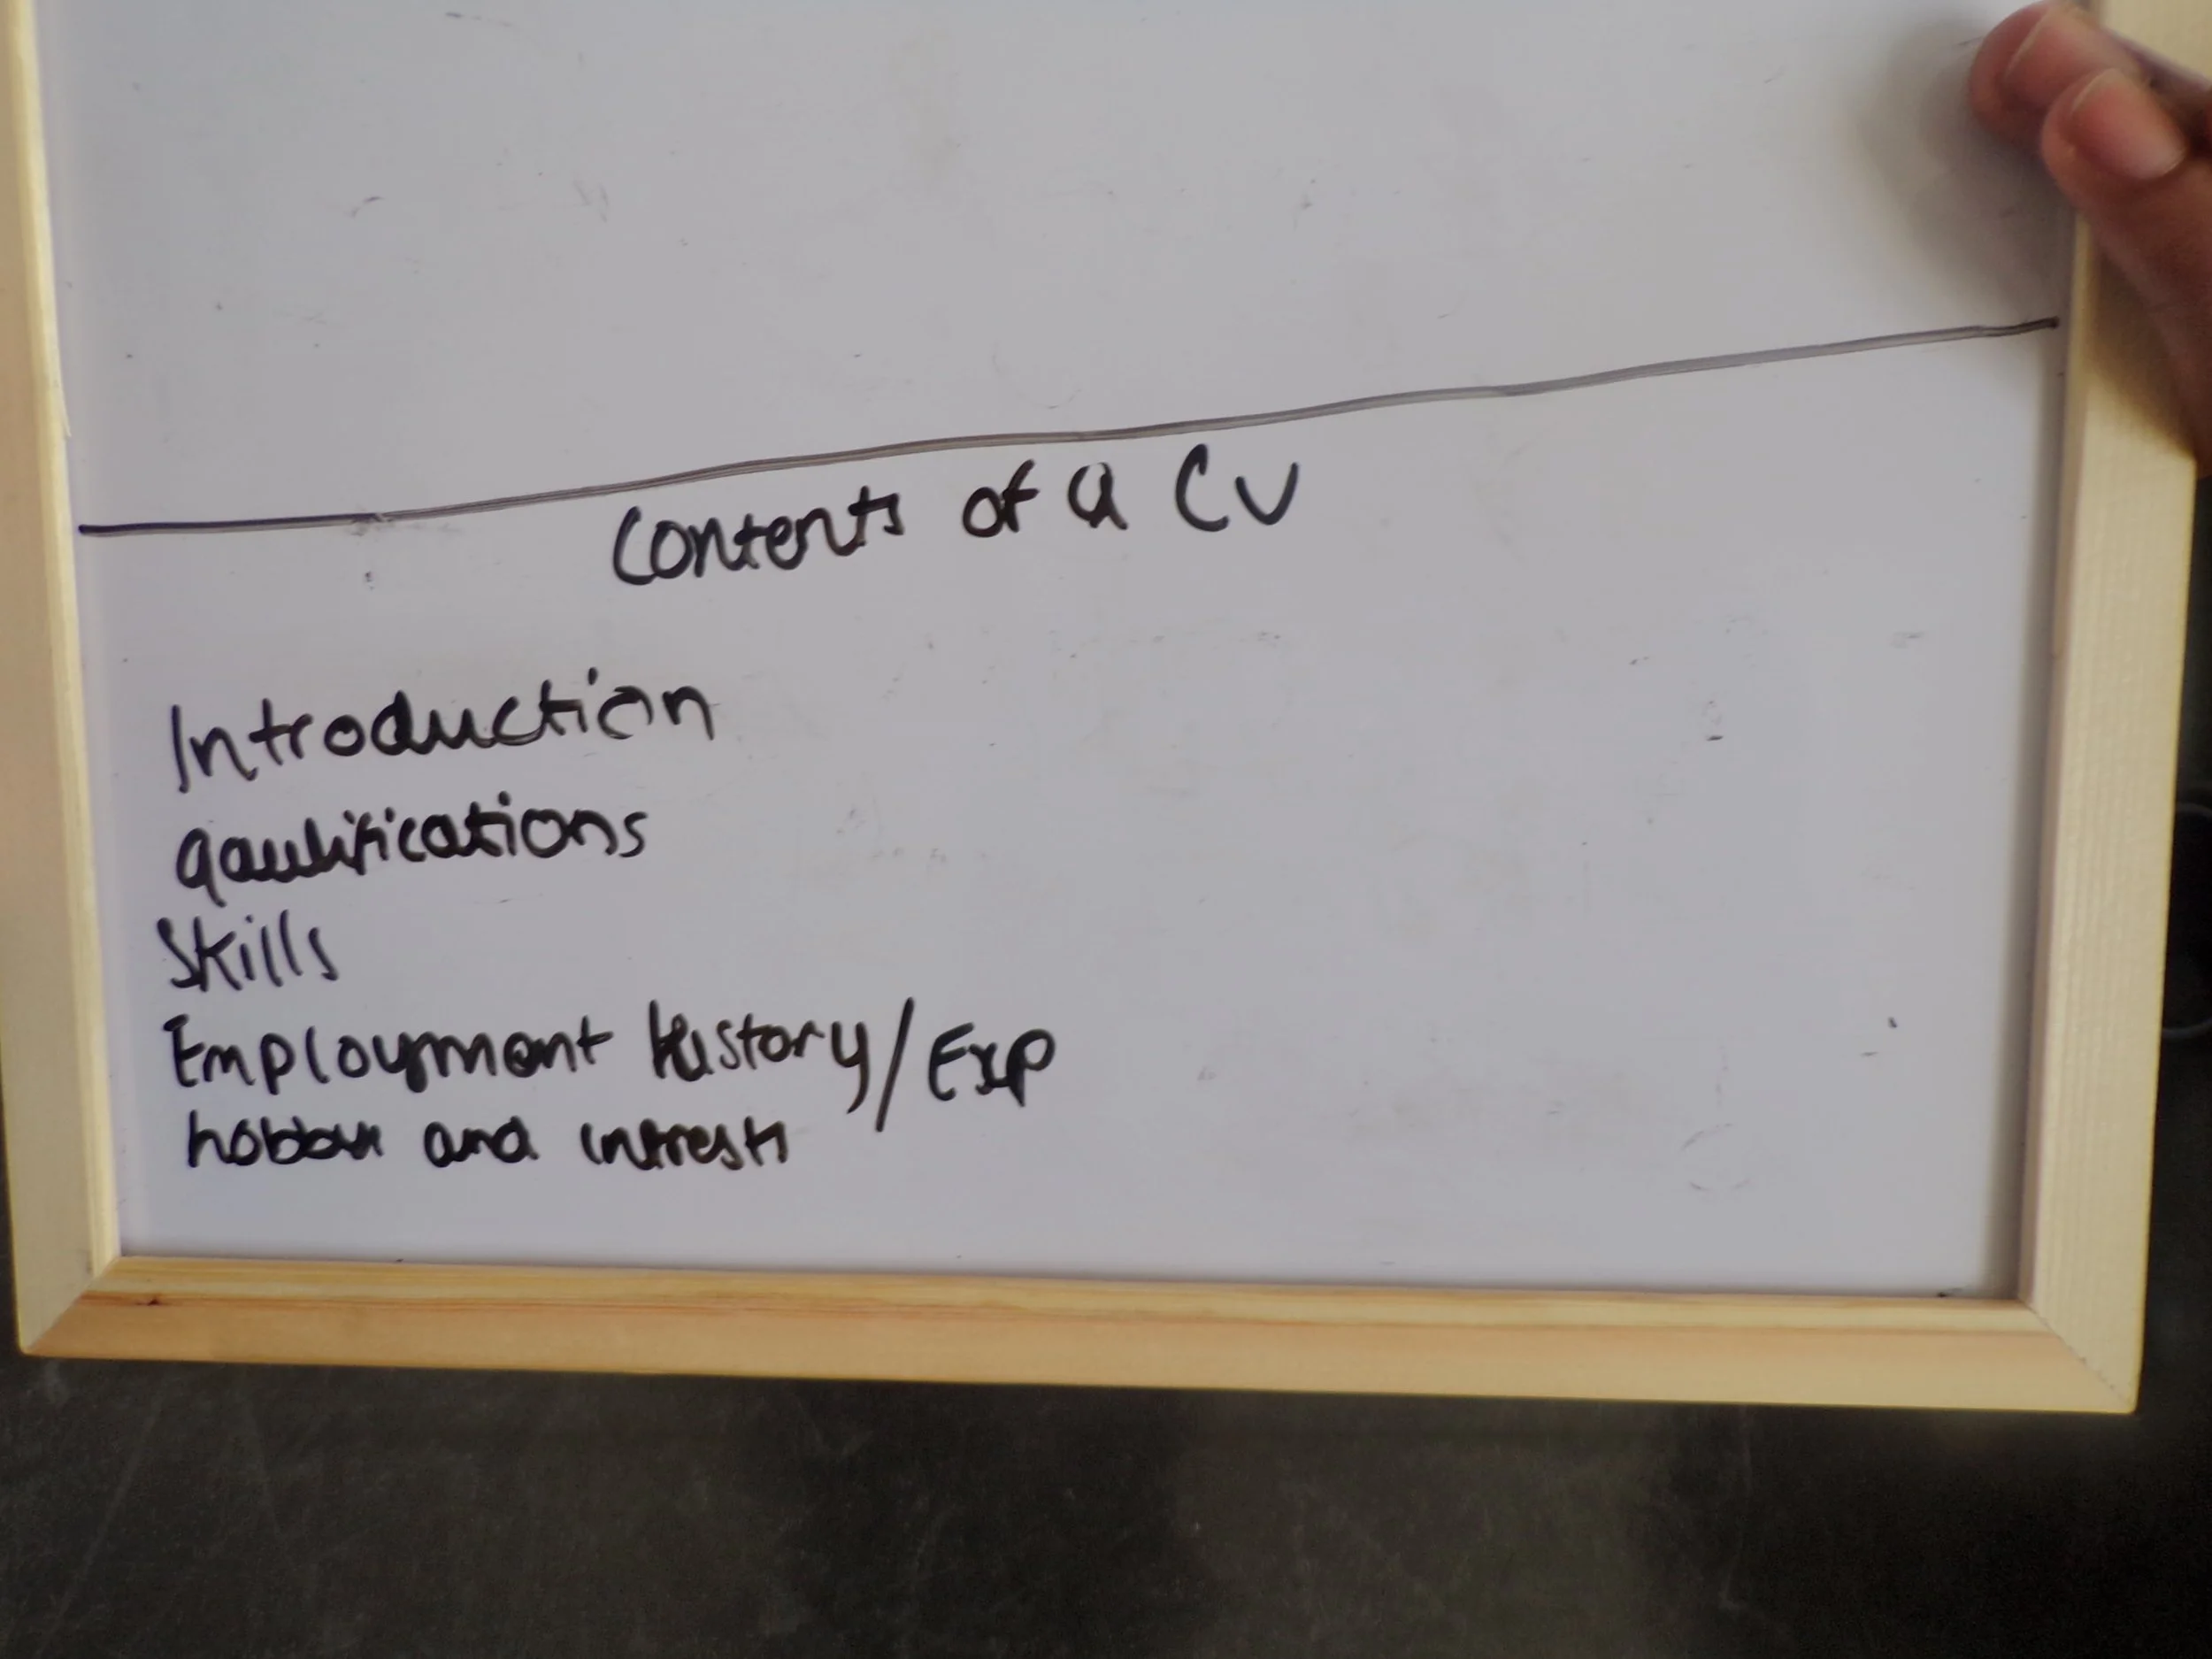 Contents of a CV
Introduction
qaulifications
Skills
Employment History/Exp
and intrests